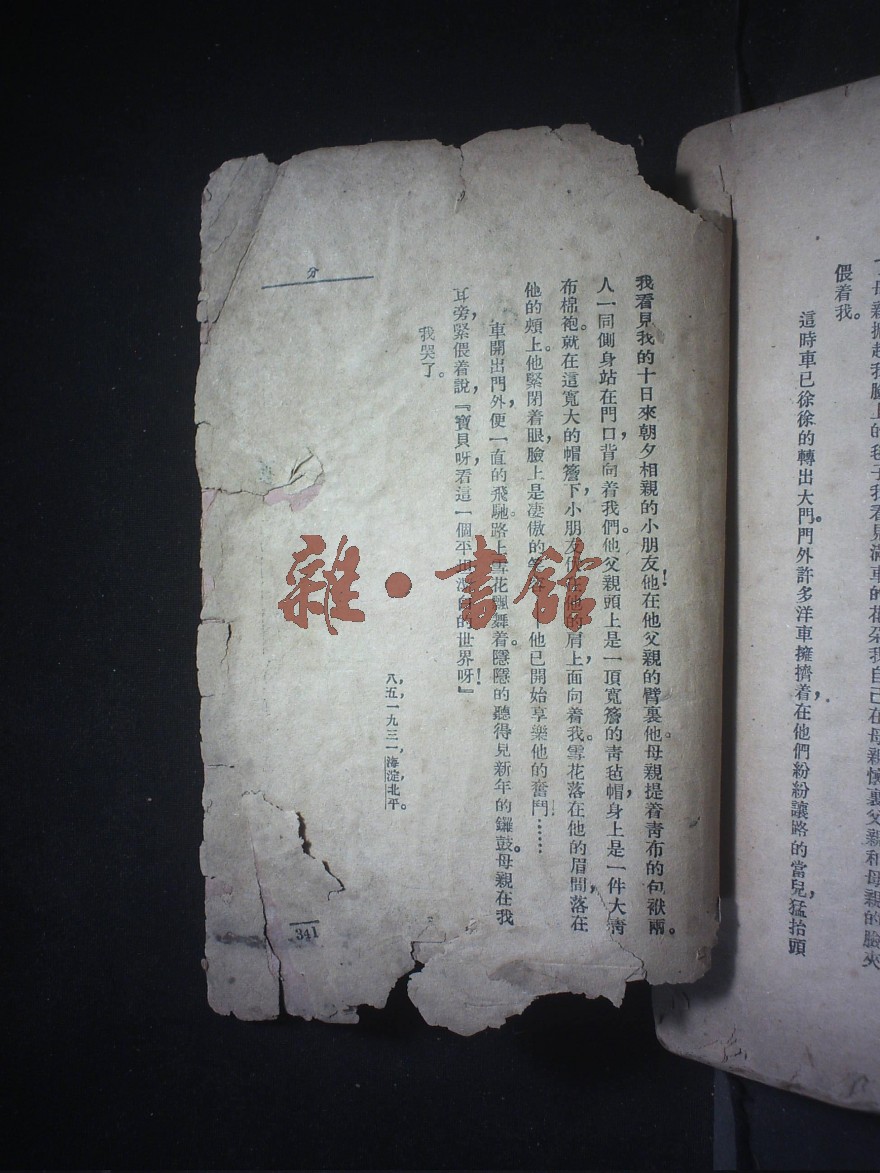 母親掀起我臉上的毯子我看見滿車的花朵我自己在母親懷裏父親和母親的臉夾
偎着我。
這時車已徐徐的轉出大門。門外許多洋車擁擠着,在他們紛紛讓路的當兒,猛抬頭
我看見我的十日來朝夕相親的小朋友!他在他父親的臂裏。他母親提着青布的包袱。兩
人一同側身站在門口,背向着我們。他父親頭上是一頂寬簷的青毡帽,身上是一件大青
布棉袍。就在這寬大的帽簷下,小朋友伏在他的肩上,面向着我。雪花落在他的眉間,落在
他的頰上。他緊閉着眼,臉上是凄傲的笑容——他已開始享樂他的奮鬥……
車開出門外,便一直的飛馳。路上雪花飄舞着。隱隱的聽得見新年的鑼鼓。母親在我
耳旁,緊偎着說,『寶貝呀,看這一個平坦潔白的世界呀!』
我哭了。
八,五,一九三一,海淀,北平。
分
341
雜·書館